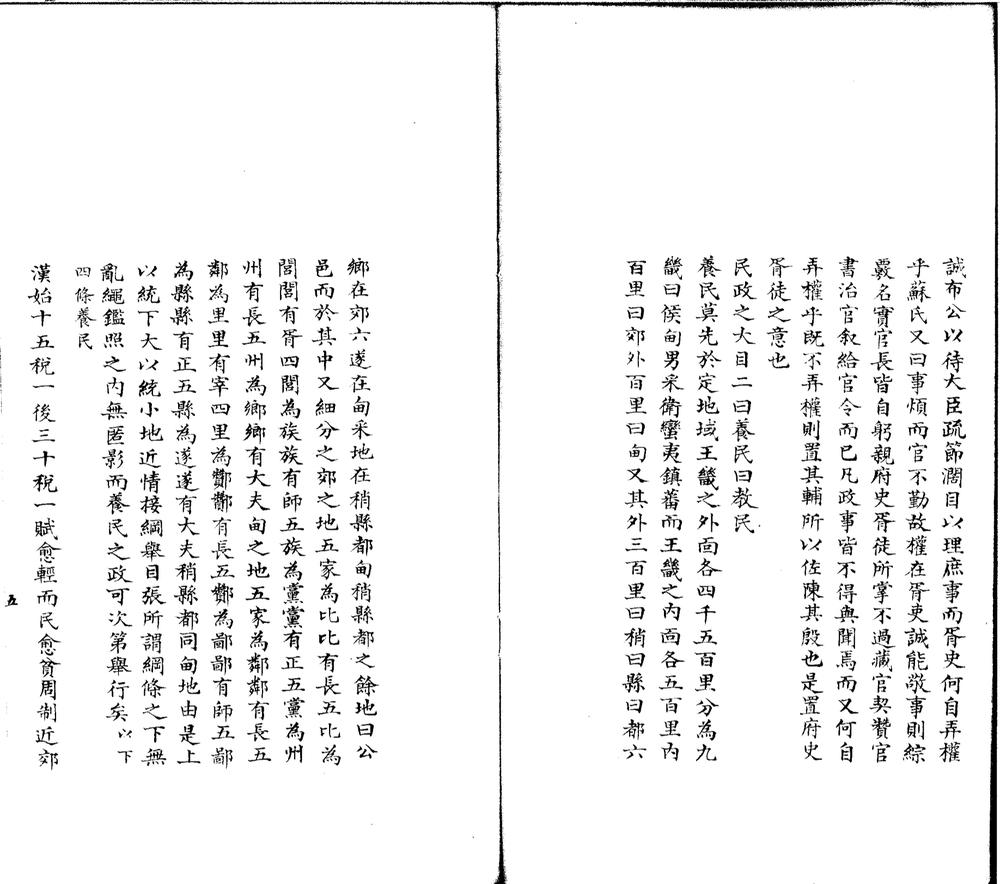 誠布公以待大臣疏節濶目以理庶事而胥史何自弄權
乎蘇氏又曰事煩而官不勤故權在胥吏誠能敬事則綜
覈名實官長皆自躬親府史胥徒所掌不過藏官契贊官
書治官叙給官令而已凡政事皆不得與聞焉而又何自
弄權乎既不弄權則置其輔所以佐陳其殷也是置府史
胥徒之意也
民政之大目二曰養民曰教民
養民莫先於定地域王畿之外面各四千五百里分為九
畿曰侯甸男采衛蠻夷鎮蕃而王畿之內面各五百里內
百里曰郊外百里曰甸又其外三百里曰稍曰縣曰都六
鄉在郊六遂在甸采地在稍縣都甸稍縣都之餘地曰公
邑而於其中又細分之郊之地五家為比比有長五比為
閭閭有胥四閭為族族有師五族為黨黨有正五黨為州
州有長五州為鄉鄉有大夫甸之地五家為鄰鄰有長五
鄰為里里有宰四里為酇酇有長五酇為鄙鄙有師五鄙
為縣縣有正五縣為遂遂有大夫稍縣都同甸地由是上
以統下大以統小地近情接綱舉目張所謂綱條之下無
亂繩鑑照之內無匿影而養民之政可次第舉行矣以下
四條養民
漢始十五稅一後三十稅一賦愈輕而民愈貧周制近郊
五